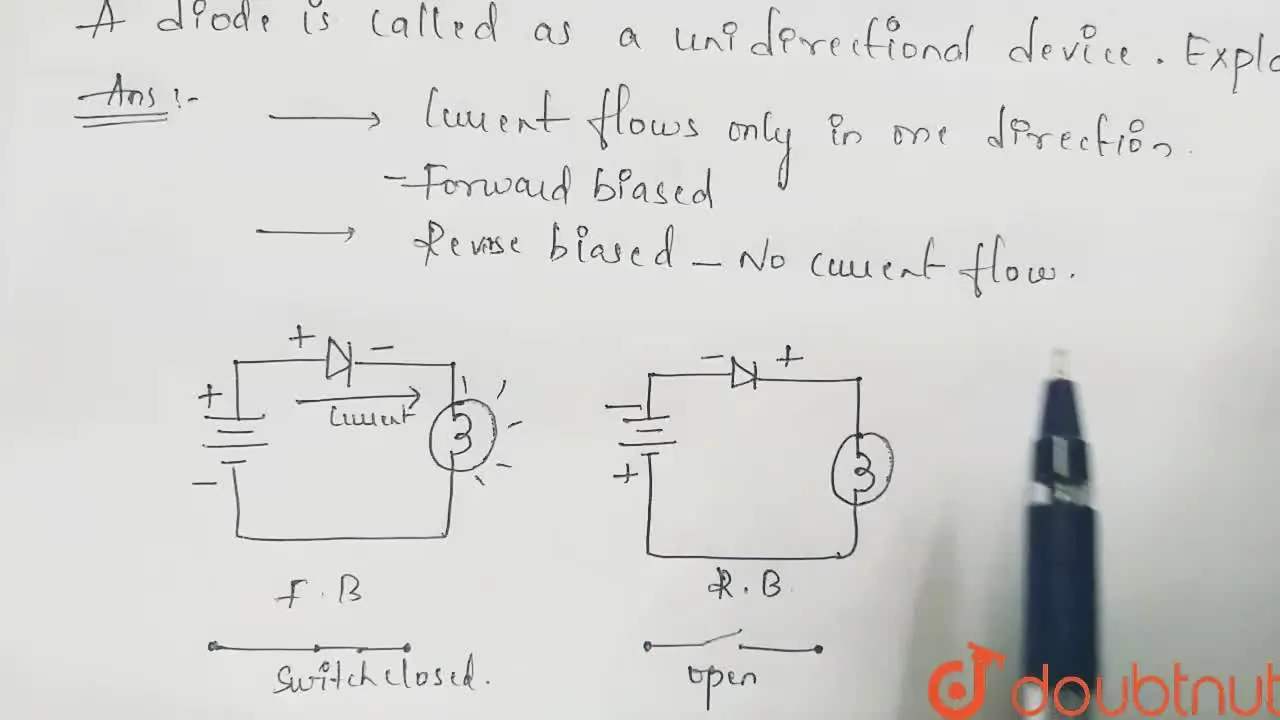 A diode is called as a unidirectional device. Expla
Ans :-
→ Current flows only in one direction.
- Forward biased
→ Reverse biased - No current flow.
+ -
+
Current
-
- +
-
+
F.B
R.B.
Switch closed.
open
doubtnut